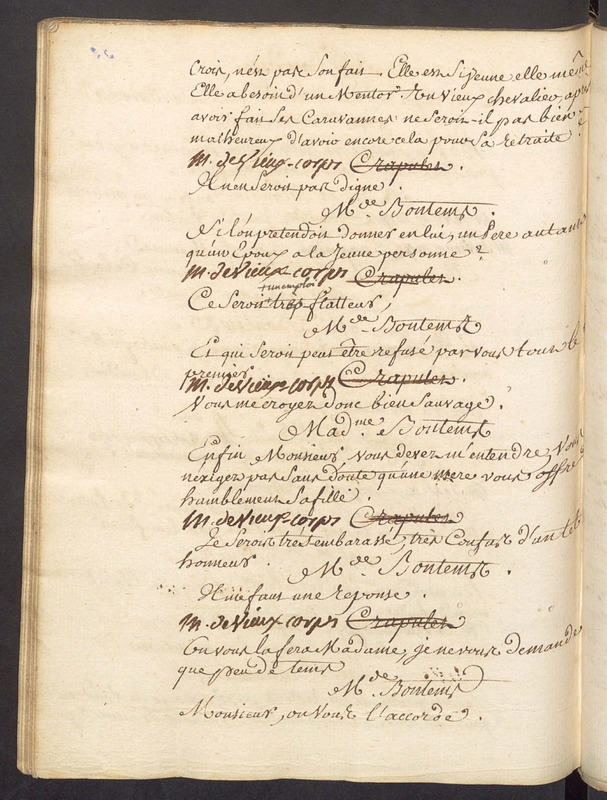 crois, n'est pas son fait. Elle est si jeune elle même
Elle a besoin d'un Mentor. Un vieux chevalier, après
avoir fait ses Caravannes ne seroit-il pas bien
malheureux d'avoir encore cela pour sa retraite ?
M. de Vieux-corps Crapulet.
Il n'en seroit pas digne.
M.de Bontems.
Si l'on pretendoit donner en lui, un Pere autant
qu'un Epoux a la jeune personne ?
M. de Vieux-corps Crapulet.
un emploi
Ce seroit trop flatteur,
M.de Bontems
Et qui seroit peut être refusé par vous tout le
premier.
M. de Vieux-corps Crapulet.
Vous me croyez donc bien Sauvage.
Mad.me Bontems
Enfin Monsieur vous devez m'entendre, vous
n'exigez pas sans doute qu'une mere vous offre
humblement sa fille.
M. de Vieux-corps Crapulet
Je serois très embarassé, très confus d'un tel
honneur.
M.de Bontems.
Il me faut une reponse.
M. de Vieux-corps Crapulet
On vous la fera Madame, je ne vous demande
que peu de tems
M.de Bontems
Monsieur, on vous l'accorde.